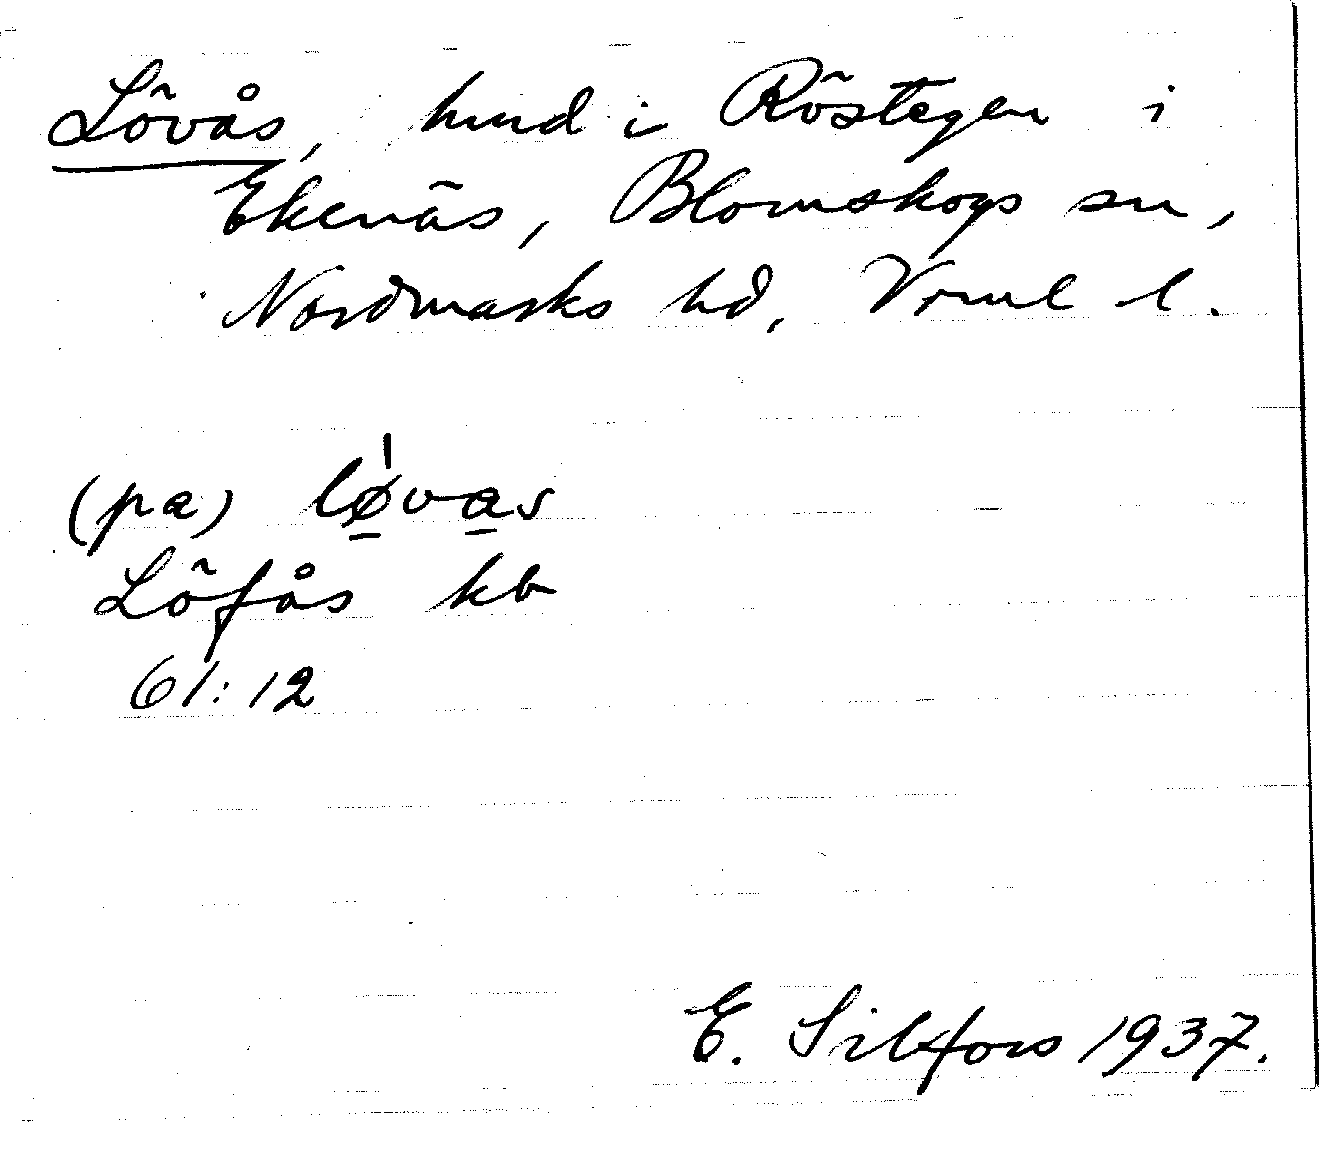 Lövås, hmd i Röstegen i
Ekenäs, Blomskogs sn,
Nordmarks hd, Vrml l.
(pa) lǿ̱va̱s
Löfås kb
61:12
E. Silfors 1937.